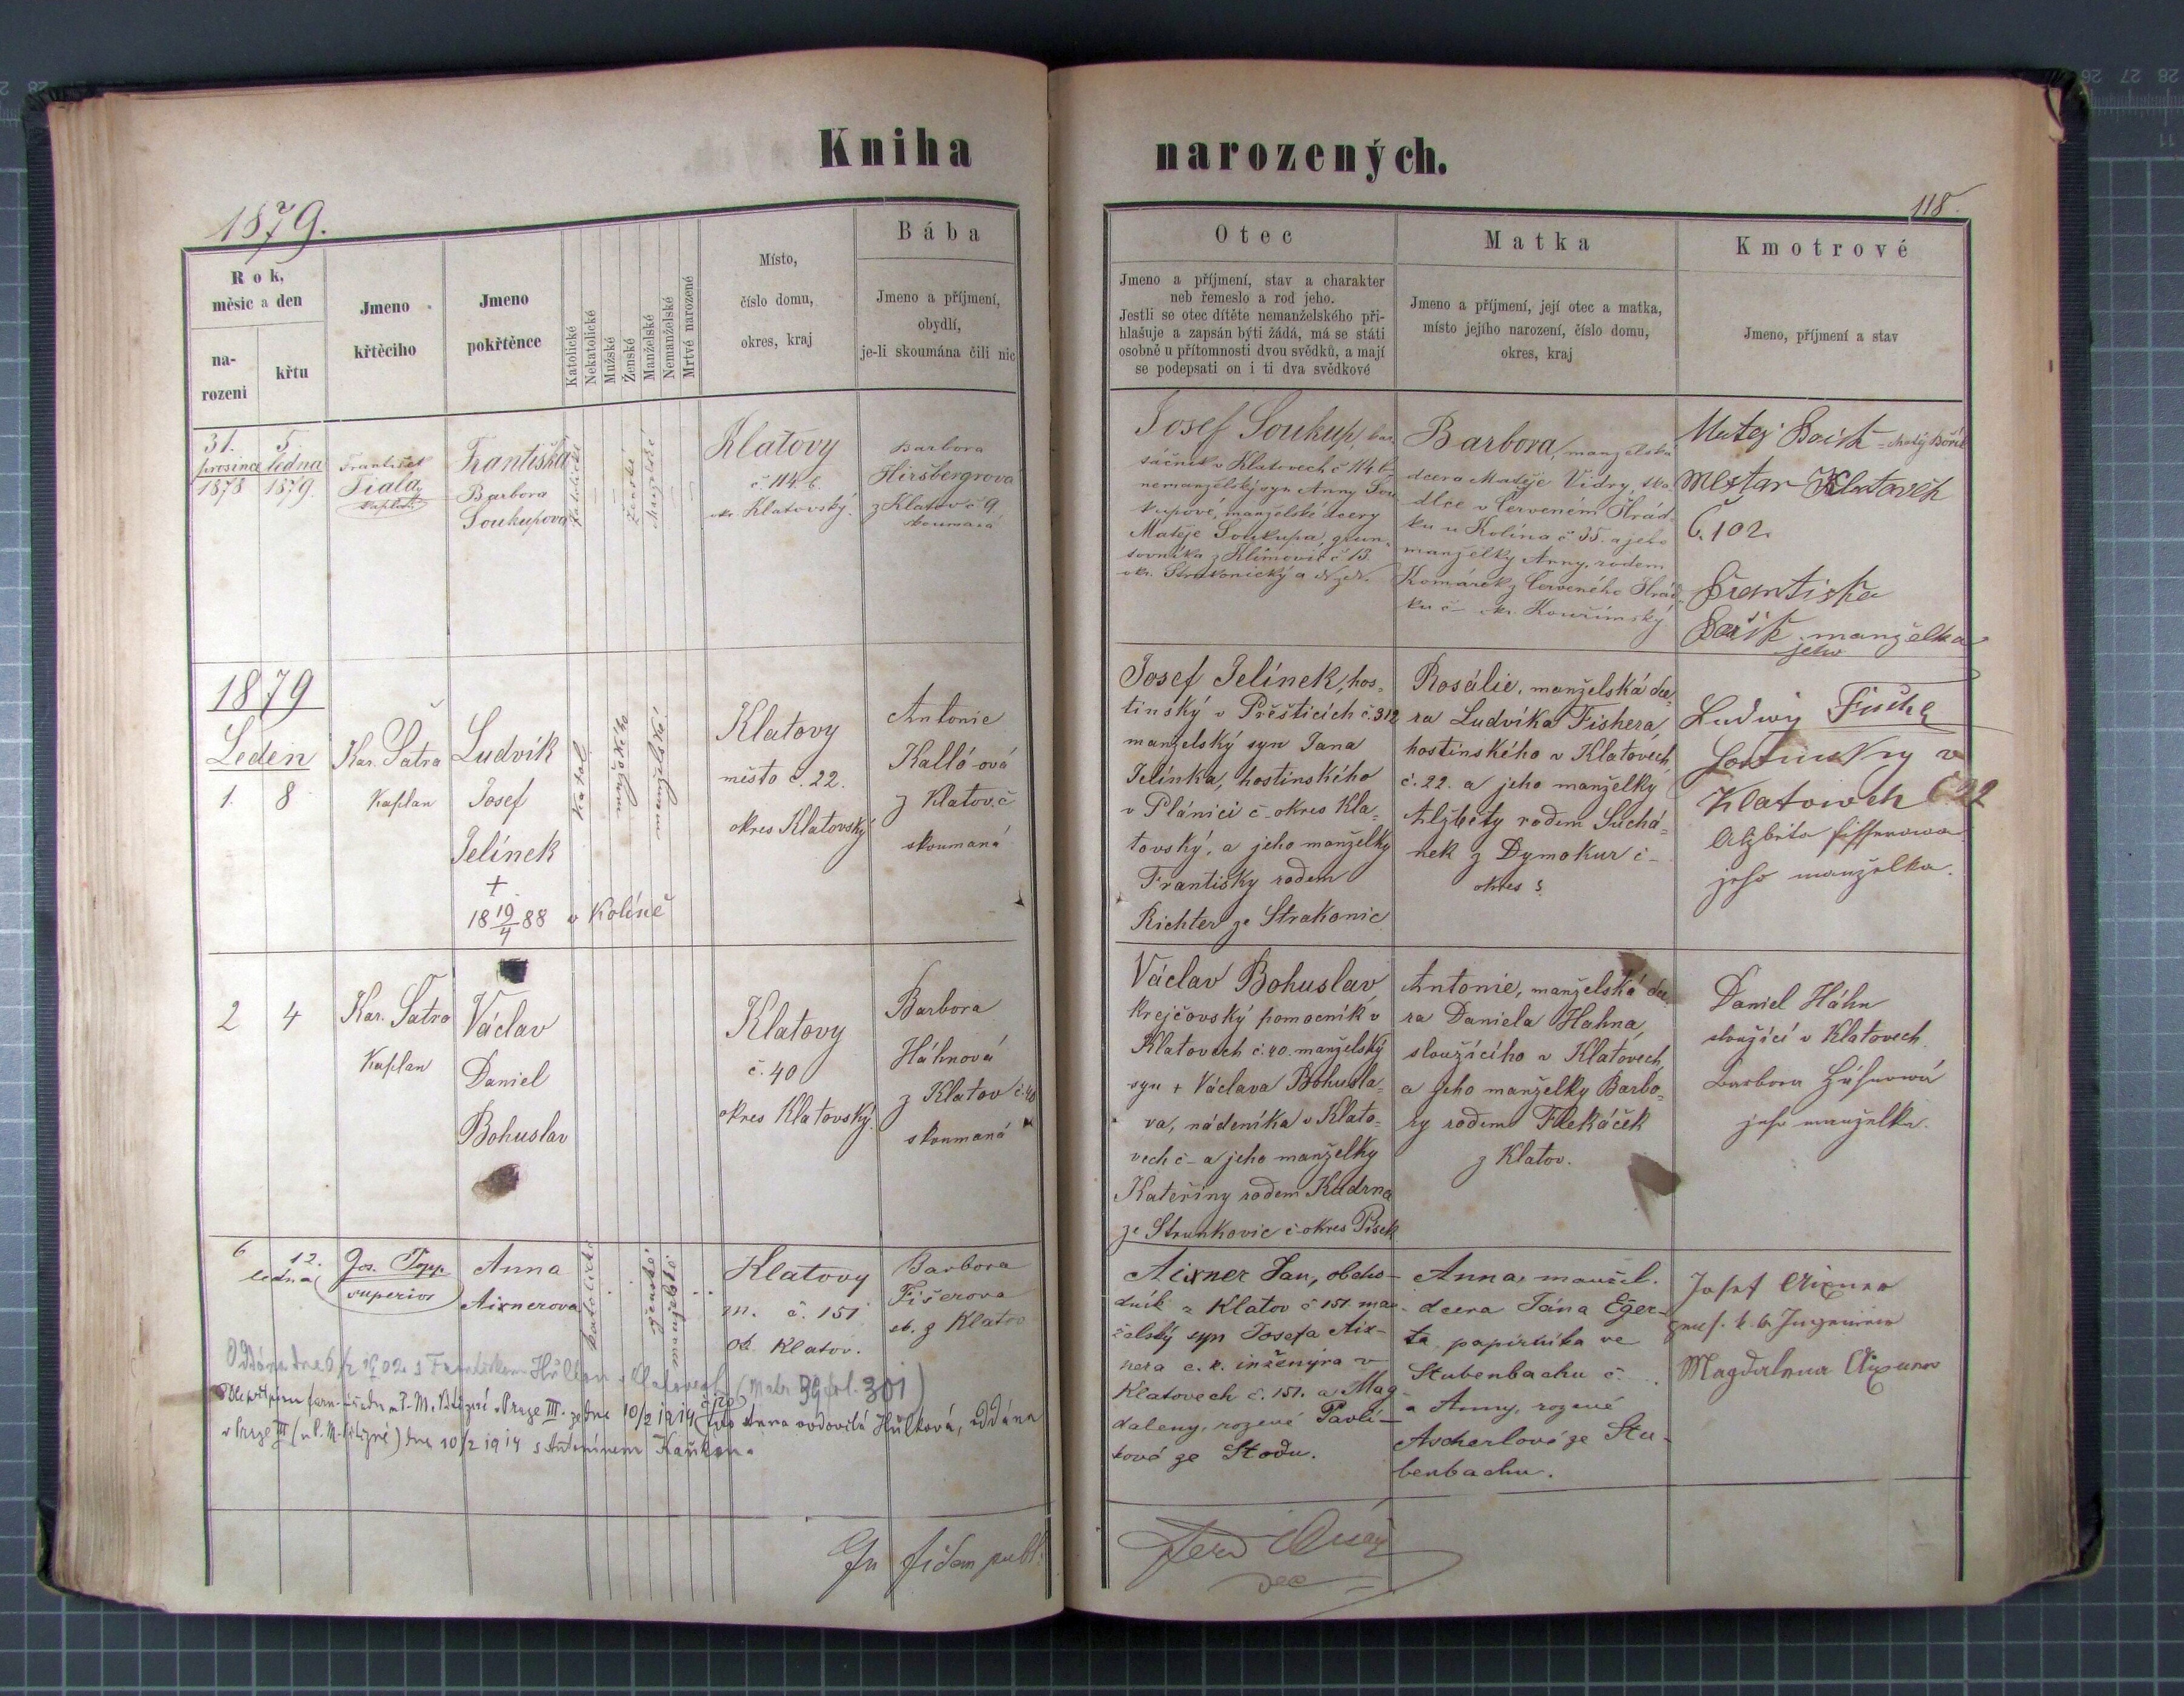 Kniha narozených.
1879.
118.
Rok,
měsíc a den
na-
rozeni
křtu
Jmeno
křtěcího
Jmeno
pokřtěnce
Katolické
Nekatolické
Mužské
Ženské
Manželské
Nemanželské
Mrtvé narozené
Místo,
číslo domu,
okres, kraj
Bába
Jmeno a příjmení,
obydlí,
je-li skoumána čili nic
Otec
Jmeno a příjmení, stav a charakter
neb řemeslo a rod jeho.
Jestli se otec dítěte nemanželského při-
hlašuje a zapsán býti žádá, má se státi
osobně u přítomnosti dvou svědků, a mají
se podepsati on i ti dva svědkové
Matka
Jmeno a příjmení, její otec a matka,
místo jejího narození, číslo domu,
okres, kraj
Kmotrové
Jmeno, příjmení a stav
31.
prosince
1878
5.
ledna
1879.
František
Fiala
kaplan
Františka
Barbora
Soukupova
katolické
ženské
manželské
Klatovy
č. 114. b.
okr. Klatovský.
Barbora
Hiršbergrova
z Klatov č 9
skoumaná
Josef Soukup,
v Klatovech č 114 b
nemanželský syn Anny Sou
kupové, manželské dcery
Matěje Soukupa,
z Klimovic č 13.
okr. Strakonický
Barbora, manželská
dcera Matěje Vidry,
v Červeném Hrád-
ku u Kolína č 35. a jeho
manželky Anny, rodem
Komárek z Červeného Hrád-
ku č – okr. Kouřimský
Matej
Klatovech
č. 102.
Frantiska
manželka
jeho
1879
Leden
1. 8
Kar. Šatra
Kaplan
Ludvík
Josef
Jelínek
+
18 19/4 88 v Kolíně
Katol.
mužského
manželské
Klatovy
město č. 22.
okres Klatovský
Antonie
Kalló-ová
z Klatov. č
skoumaná
Josef Jelínek, hos-
tinský v Přešticích č. 312
manželský syn Jana
Jelínka, hostinského
v Plánici č – okres Kla-
tovský, a jeho manželky
Františky rodem
Richter ze Strakonic
Rosálie, manželská dce-
ra Ludvíka Fishera,
hostinského v Klatovech
č. 22. a jeho manželky
Alžběty rodem Suchá-
nek z Dymokur č –
okres
Ludwig
v
Klatowech č 22
Alzbeta
jeho manzelka.
2 4
Kar. Šatra
Kaplan
Václav
Daniel
Bohuslav
Klatovy
č. 40
okres Klatovský.
Barbora
Háhnová
z Klatov č. 40
skoumaná
Václav Bohuslav,
krejčovský pomocník v
Klatovech č. 40. manželský
syn + Václava Bohusla-
va, nádeníka v Klato-
vech č – a jeho manželky
Kateřiny rodem Kudrna
ze Strunkovic č – okres Písek
Antonie, manželská dce-
ra Daniela Hahna,
sloužícího v Klatovech
a jeho manželky Barbo-
ry rodem Flekáček
z Klatov.
Daniel Háhn
sloužící v Klatovech.
Barbora Háhnowá
jeho manželka.
6 12.
ledna
Jos. Topp
superior
Anna
Aixnerova
katolické
ženské
manželské
Klatovy
m. č. 151
ok. Klatov.
Barbora
Fišerova
st. z Klatov
Aixner Jan, obcho-
dník z Klatov č 151. man-
želský syn Josefa Aix-
nera c. k. inženýra v
Klatovech č. 151. a Mag
daleny, rozené Pavlí-
kové ze Stodu.
Anna, manžel.
dcera Jána Eger-
ta, papírníka ve
Stubenbachu č.
a Anny, rozené
Ascherlové ze Stu-
benbachu.
Josef Aixner
k. k. Ingenieur
Magdalena Aixner
Oddána dne s Františkem Hůlkou v Klatovech (Matr. 39 fol. 301)
v Praze III. ze dne 10/2 1914 Anna ovdovělá Hůlková, oddána
v Praze III dne 10/2 1914 s Antonínem
In fidem publ.
Ferd